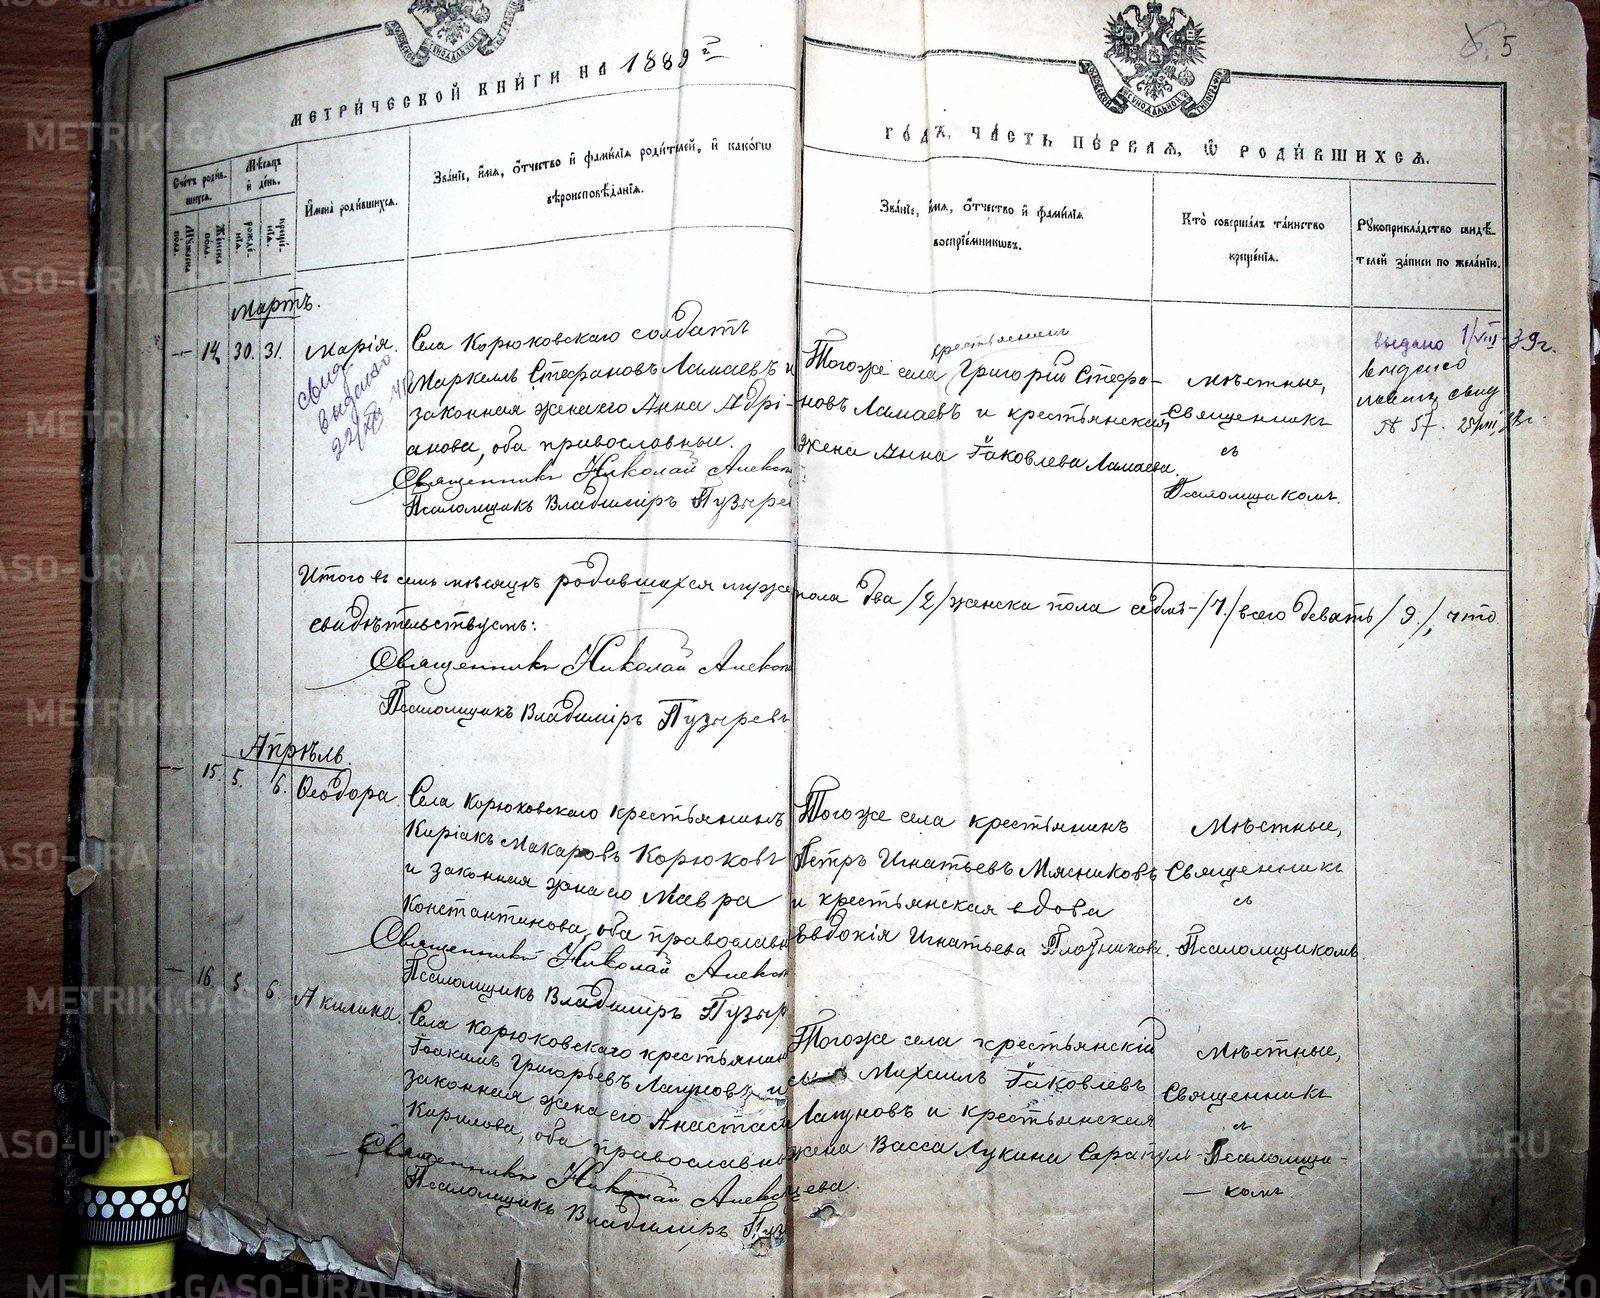 МЕТРИ́ЧЕСКОЙ КНИ́ГИ НА 1889 г
ГО́ДЪ, ЧА́СТЬ ПЕ́РВАЯ, Ѡ РОДИ́ВШИХСЯ.
5
Сче́тъ роди́в-
шихся.
Му́жеска по́ла.
Же́нска по́ла.
Мѣ́сяцъ и де́нь.
рожде́-
нія.
креще́-
нія.
Имена роди́вшихся.
Зва́ніе, и́мя, о́тчество и фами́лія роди́телей, и како́гѡ
вѣроисповѣ́данія.
Зва́ніе, и́мя, о́тчество и фами́лія
воспріе́мниковъ.
Кто̀ соверша́лъ та́инство
креще́нія.
Рукоприкла́дство свидѣ́-
телей за́писи по жела́нію.
Мартъ.
— 14 30. 31. Марія.
Села Корюковскаго солдатъ
Маркеллъ Стефановъ Ламаевъ и
законная жена его Анна Адрі-
анова, оба православные.
Священникъ Николай Алекс
Псаломщикъ Владиміръ Пузырев
крестьянинъ
Тогоже села Григорій Стефа-
новъ Ламаевъ и крестьянская
жена Анна Іаковлева Ламаева.
Мѣстные,
Священникъ
съ
Псаломщикомъ.
выдано 1/VIII-39г.
выдано
свид
№ 57.
выдано
Итого въ семъ мѣсяцѣ родившихся мужска пола два /2/ женска пола седмь /7/ всего девять /9/, что
свидѣтельствуемъ:
Священникъ Николай Алекс
Псаломщикъ Владиміръ Пузыревъ
Апрѣль.
— 15. 5. 6. Ѳеодора.
Села Корюковскаго крестьянинъ
Киріакъ Макаровъ Корюковъ
и законная жена его Мавра
Константинова, оба православн
Священникъ Николай Алекс
Псаломщикъ Владиміръ Пузыр
Тогоже села крестьянинъ
Петръ Игнатьевъ Мясниковъ
и крестьянская вдова
Евдокія Игнатьева Плотникова.
Мѣстные,
Священникъ
съ
Псаломщикомъ.
— 16. 5 6. Акилина.
Села Корюковскаго крестьянин
Іоакимъ Григорьевъ Лагуновъ и
законная жена его Анастасія
Кирилова, оба православны
Священникъ Николай Алекс
Псаломщикъ Владиміръ Пуз
Тогоже села крестьянскій
сынъ Михаилъ Іаковлевъ
Лагуновъ и крестьянская
жена Васса Лукина Сарапуль-
цева.
Мѣстные,
Священникъ
съ
Псаломщи-
— комъ.
METRIKI.GASO-URAL.RU